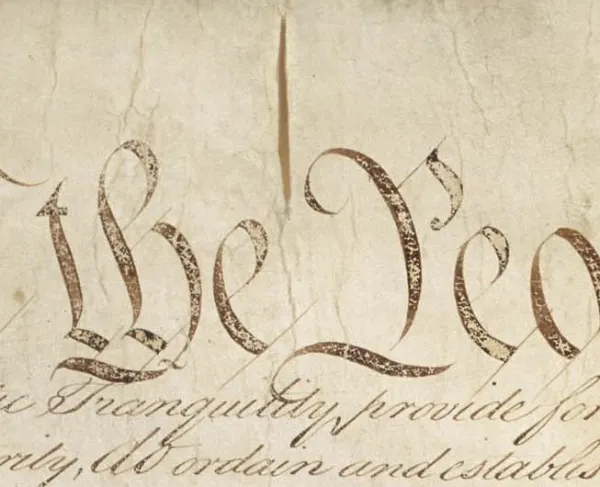 the Peo
ic Tranquility, provide for
rity, do ordain and establis